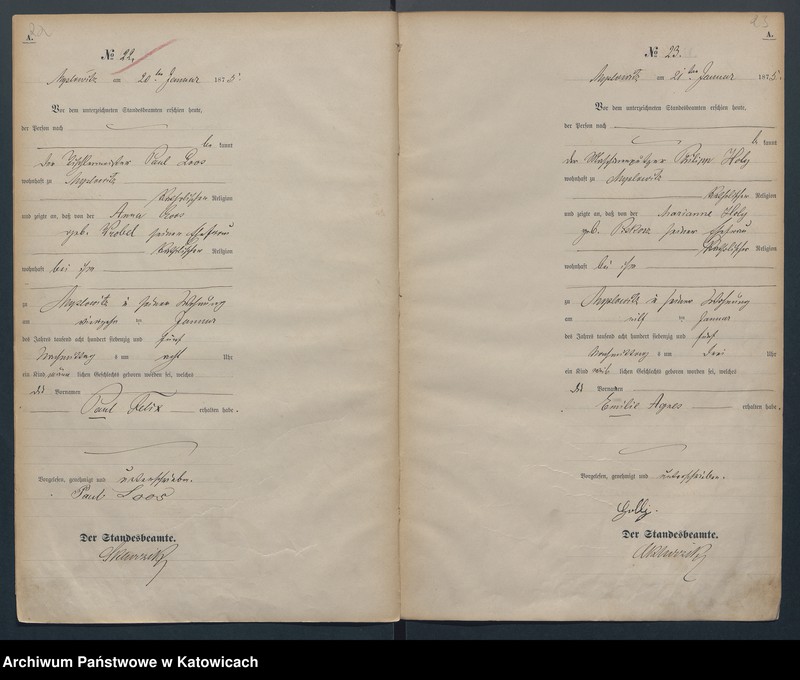 22
A.
№ 22.
Myslowitz am 20ten Januar 1875.
Vor dem unterzeichneten Standesbeamten erschien heute,
der Person nach
be kannt
der Tischlermeister Paul Loos
wohnhaft zu Myslowitz
katholischer Religion
und zeigte an, daß von der Anna Loos
geb. Wrobel seiner Ehefrau
katholischer Religion
wohnhaft bei ihm
zu Myslowitz in seiner Wohnung
am vierzehn ten Januar
des Jahres tausend acht hundert siebenzig und fünf
Nachmittag s um acht Uhr
ein Kind männ lichen Geschlechts geboren worden sei, welches
die Vornamen
Paul Felix erhalten habe.
Vorgelesen, genehmigt und unterschrieben.
Paul Loos
Der Standesbeamte.
23
A.
№ 23.
Myslowitz am 21ten Januar 1875.
Vor dem unterzeichneten Standesbeamten erschien heute,
der Person nach
be kannt
der Maschinenputzer Philipp Holy
wohnhaft zu Myslowitz
katholischer Religion
und zeigte an, daß von der Marianne Holy
geb. seiner Ehefrau
katholischer Religion
wohnhaft bei ihm
zu Myslowitz in seiner Wohnung
am elf ten Januar
des Jahres tausend acht hundert siebenzig und fünf
Nachmittag s um drei Uhr
ein Kind weib lichen Geschlechts geboren worden sei, welches
die Vornamen
Emilie Agnes erhalten habe.
Vorgelesen, genehmigt und unterschrieben.
Der Standesbeamte.
Archiwum Państwowe w Katowicach